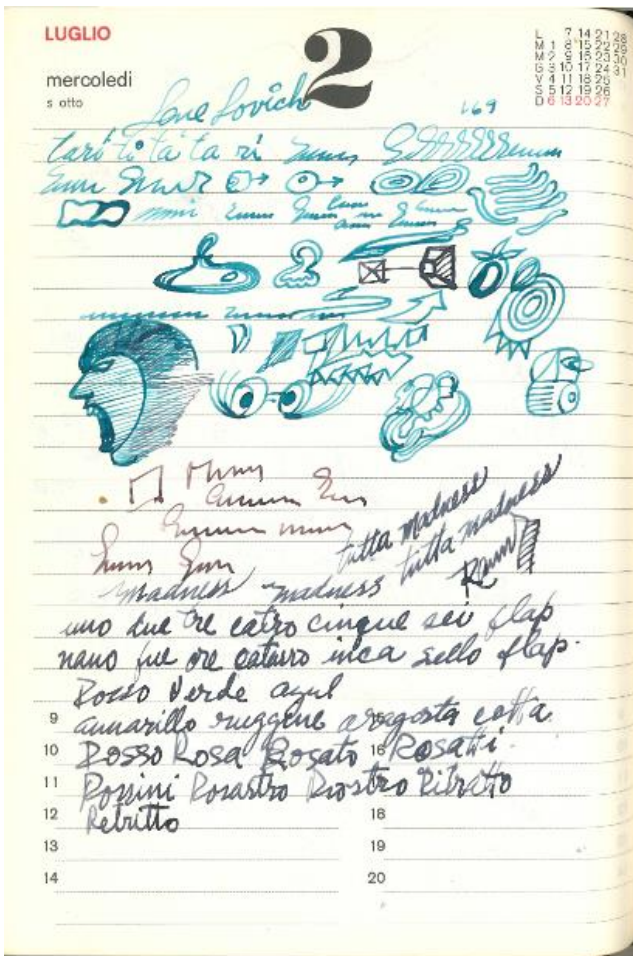 LUGLIO 2
L 7 14 21 28
M 1 8 15 22 29
M 2 9 16 23 30
G 3 10 17 24 31
V 4 11 18 25
S 5 12 19 26
D 6 13 20 27
mercoledi
s otto
Lene Lovich 169
tari ti ta ta ri
tutta madness
tutta madness
madness madness
uno due tre catro cinque sei flap
nano fue ore catarro inca sello flap.
Rosso Verde azul
9 amarillo ruggine aragosta cotta
10 Rosso Rosa Rosato 16 Rosatti.
11 Rossini Rosastro Riostro Ritratto
12 Retritto 18
13 19
14 20